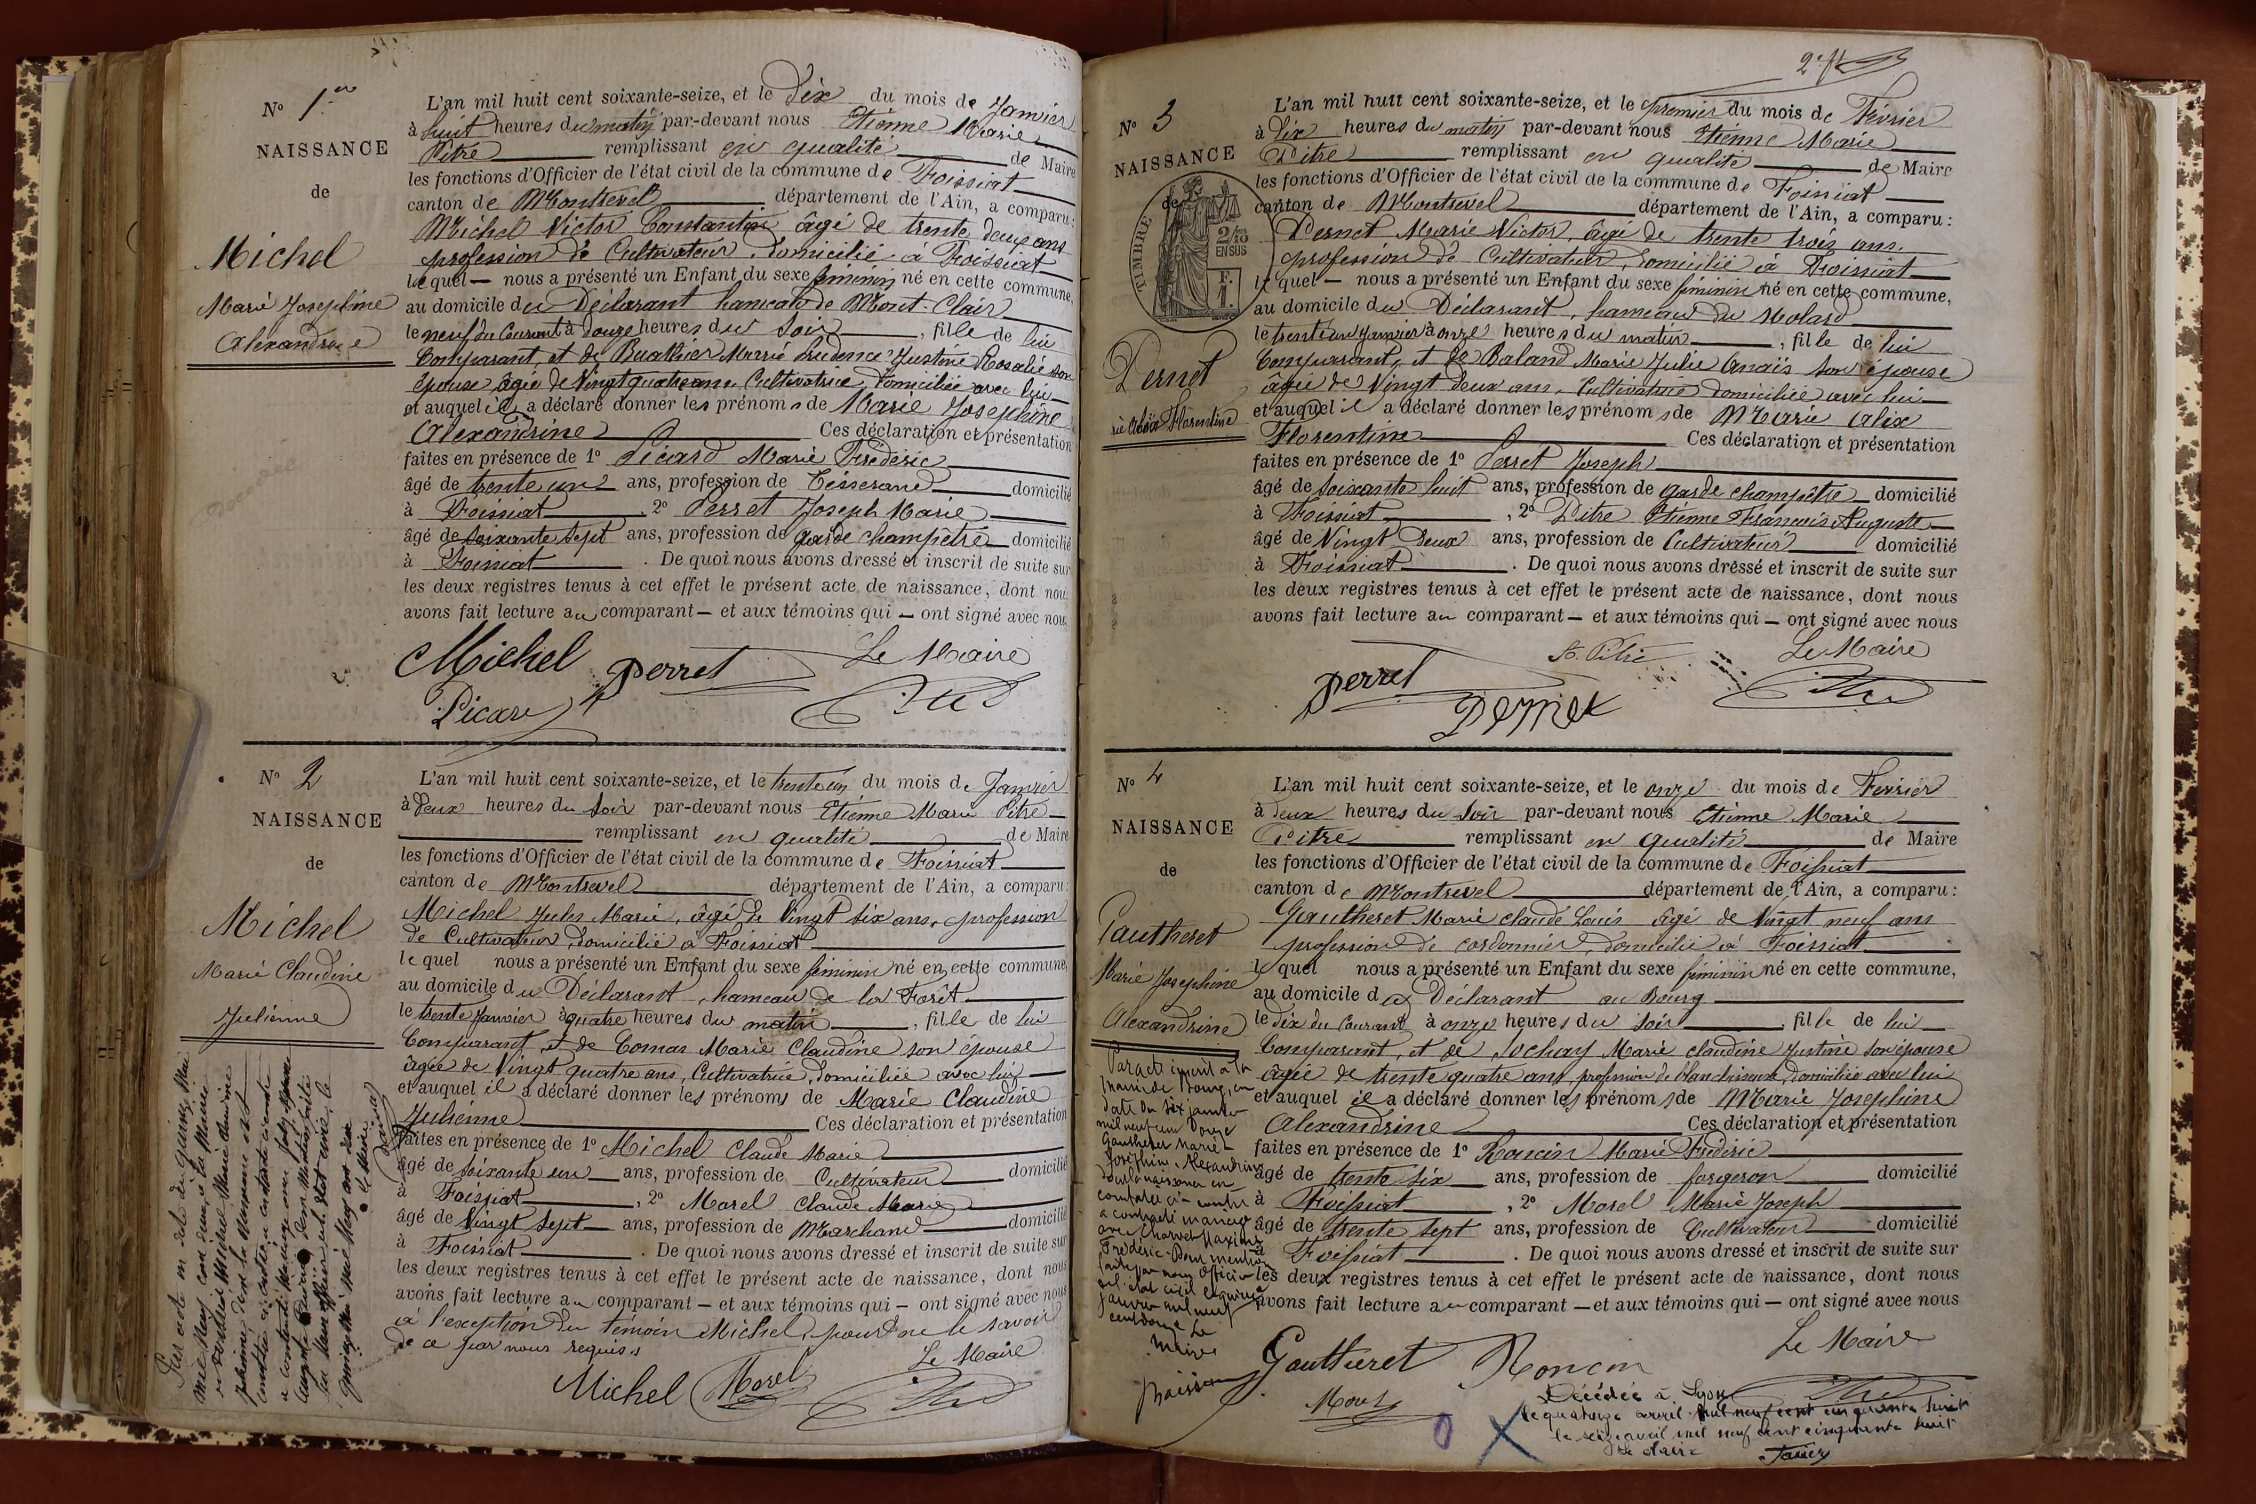 N° 1er
NAISSANCE
de
Michel
Marie Josephine
Alexandrine
L'an mil huit cent soixante-seize, et le dix du mois de Janvier
à huit heures du matin par-devant nous Etienne Marie
Pitre remplissant en qualité de Maire
les fonctions d'Officier de l'état civil de la commune de Foissiat
canton de Montrevel département de l'Ain, a comparu :
Michel Victor Constantin âgé de trente deux ans
profession de Cultivateur, domicilié à Foissiat
lequel — nous a présenté un Enfant du sexe féminin né en cette commune,
au domicile du Déclarant hameau de Mont-Clair
le neuf du Courant à douze heures du soir, fille de lui
Comparant, et de Buathier Marie Prudence Justine Rosalie son
épouse âgée de Vingt quatre ans Cultivatrice, domiciliée avec lui
et auquel il a déclaré donner les prénoms de Marie Josephine
Alexandrine Ces déclaration et présentation
faites en présence de 1° Picard Marie Frédéric
âgé de trente un ans, profession de Tisserand domicilié
à Foissiat, 2° Perret Joseph Marie
âgé de soixante sept ans, profession de garde champêtre domicilié
à Foissiat. De quoi nous avons dressé et inscrit de suite sur
les deux registres tenus à cet effet le présent acte de naissance, dont nous
avons fait lecture au comparant — et aux témoins qui — ont signé avec nous
Michel Perret Le Maire
Picard
N° 2
NAISSANCE
de
Michel
Marie Claudine
Julienne
L'an mil huit cent soixante-seize, et le trente un du mois de Janvier
à deux heures du soir par-devant nous Etienne Marie Pitre
remplissant en qualité de Maire
les fonctions d'Officier de l'état civil de la commune de Foissiat
canton de Montrevel département de l'Ain, a comparu :
Michel Jules Marie, âgé de Vingt six ans, profession
de Cultivateur, domicilié à Foissiat
lequel nous a présenté un Enfant du sexe féminin né en cette commune,
au domicile du Déclarant, hameau de la Forêt
le trente Janvier à quatre heures du matin, fille de lui
Comparant, et de Comas Marie Claudine son épouse
âgée de Vingt quatre ans, Cultivatrice, domiciliée avec lui
et auquel il a déclaré donner les prénoms de Marie Claudine
Julienne Ces déclaration et présentation
faites en présence de 1° Michel Claude Marie
âgé de soixante un ans, profession de Cultivateur domicilié
à Foissiat, 2° Morel Claude Marie
âgé de Vingt sept ans, profession de Marchand domicilié
à Foissiat. De quoi nous avons dressé et inscrit de suite sur
les deux registres tenus à cet effet le présent acte de naissance, dont nous
avons fait lecture au comparant — et aux témoins qui — ont signé avec nous
à l'exception du témoin Michel, pour ne le savoir
de ce par nous requis
Le Maire
Michel Morel
2e ft
N° 3
NAISSANCE
de
TIMBRE
2/10
EN SUS
F.
1.
Pernet
Marie Alix Florentine
L'an mil huit cent soixante-seize, et le premier du mois de Février
à dix heures du matin par-devant nous Etienne Marie
Pitre remplissant en qualité de Maire
les fonctions d'Officier de l'état civil de la commune de Foissiat
canton de Montrevel département de l'Ain, a comparu :
Pernet Marie Victor, âgé de trente trois ans,
profession de Cultivateur, domicilié à Foissiat
lequel — nous a présenté un Enfant du sexe féminin né en cette commune,
au domicile du Déclarant, hameau du Molard
le trente un Janvier à onze heures du matin, fille de lui
Comparant, et de Baland Marie Julie Anaïs son épouse
âgée de Vingt deux ans, Cultivatrice domiciliée avec lui
et auquel il a déclaré donner les prénoms de Marie Alix
Florentine Ces déclaration et présentation
faites en présence de 1° Perret Joseph
âgé de soixante huit ans, profession de garde champêtre domicilié
à Foissiat, 2° Pitre Etienne François Auguste
âgé de Vingt deux ans, profession de Cultivateur domicilié
à Foissiat. De quoi nous avons dressé et inscrit de suite sur
les deux registres tenus à cet effet le présent acte de naissance, dont nous
avons fait lecture au comparant — et aux témoins qui — ont signé avec nous
A. Pitre Le Maire
Perret
Pernet
N° 4
NAISSANCE
de
Gautheret
Marie Josephine
Alexandrine
L'an mil huit cent soixante-seize, et le onze du mois de Février
à deux heures du soir par-devant nous Etienne Marie
Pitre remplissant en qualité de Maire
les fonctions d'Officier de l'état civil de la commune de Foissiat
canton de Montrevel département de l'Ain, a comparu :
Gautheret Marie Claude Louis âgé de Vingt neuf ans
profession de cordonnier, domicilié à Foissiat
lequel nous a présenté un Enfant du sexe féminin né en cette commune,
au domicile du Déclarant au Bourg
le dix du Courant à onze heures du soir, fille de lui
Comparant, et de Sochay Marie Claudine Justine son épouse
âgée de trente quatre ans, profession de blanchisseuse domiciliée avec lui
et auquel il a déclaré donner les prénoms de Marie Josephine
Alexandrine Ces déclaration et présentation
faites en présence de 1° Roncin Marie Frédéric
âgé de trente six ans, profession de forgeron domicilié
à Foissiat, 2° Morel Marie Joseph
âgé de trente sept ans, profession de Cultivateur domicilié
à Foissiat. De quoi nous avons dressé et inscrit de suite sur
les deux registres tenus à cet effet le présent acte de naissance, dont nous
avons fait lecture au comparant — et aux témoins qui — ont signé avec nous
Le Maire
Gautheret Roncin
Morel
Par acte inscrit à la
mairie de Bourg, en
date du six janvier
mil neuf cent douze
Gautheret Marie
Joséphine Alexandrine
dont la naissance est
constatée ci-contre
a contracté mariage
avec Charvet Maxime
Frédéric. Dont mention
faite par nous Officier
de l'état civil le quinze
janvier mil neuf
cent douze Le
Maire
Décédée à Lyon
le quatorze avril mil neuf cent cinquante huit
le seize avril mil neuf cent cinquante huit
Le Maire